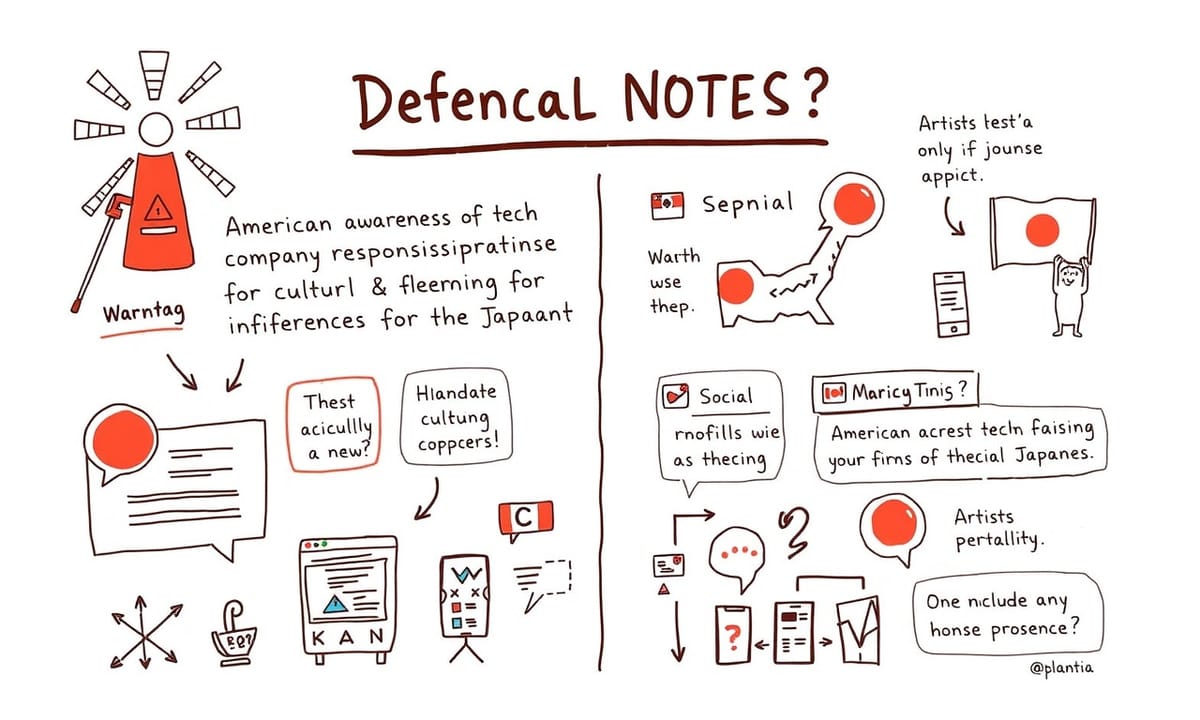 Defencal NOTES?
Warntag
American awareness of tech
company responsissipratinse
for culturl & fleerning for
infiferences for the Japaant
Thest
acicullly
a new?
Hlandate
cultung
coppcers!
C
KAN
Artists test'a
only if jounse
appict.
Sepnial
Warth
wse
thep.
Social
rnofills wie
as thecing
Maricy Tinis?
American acrest tech faising
your firns of thecial Japanes.
Artists
pertallity.
?
One nclude any
honse prosence?
@plantia